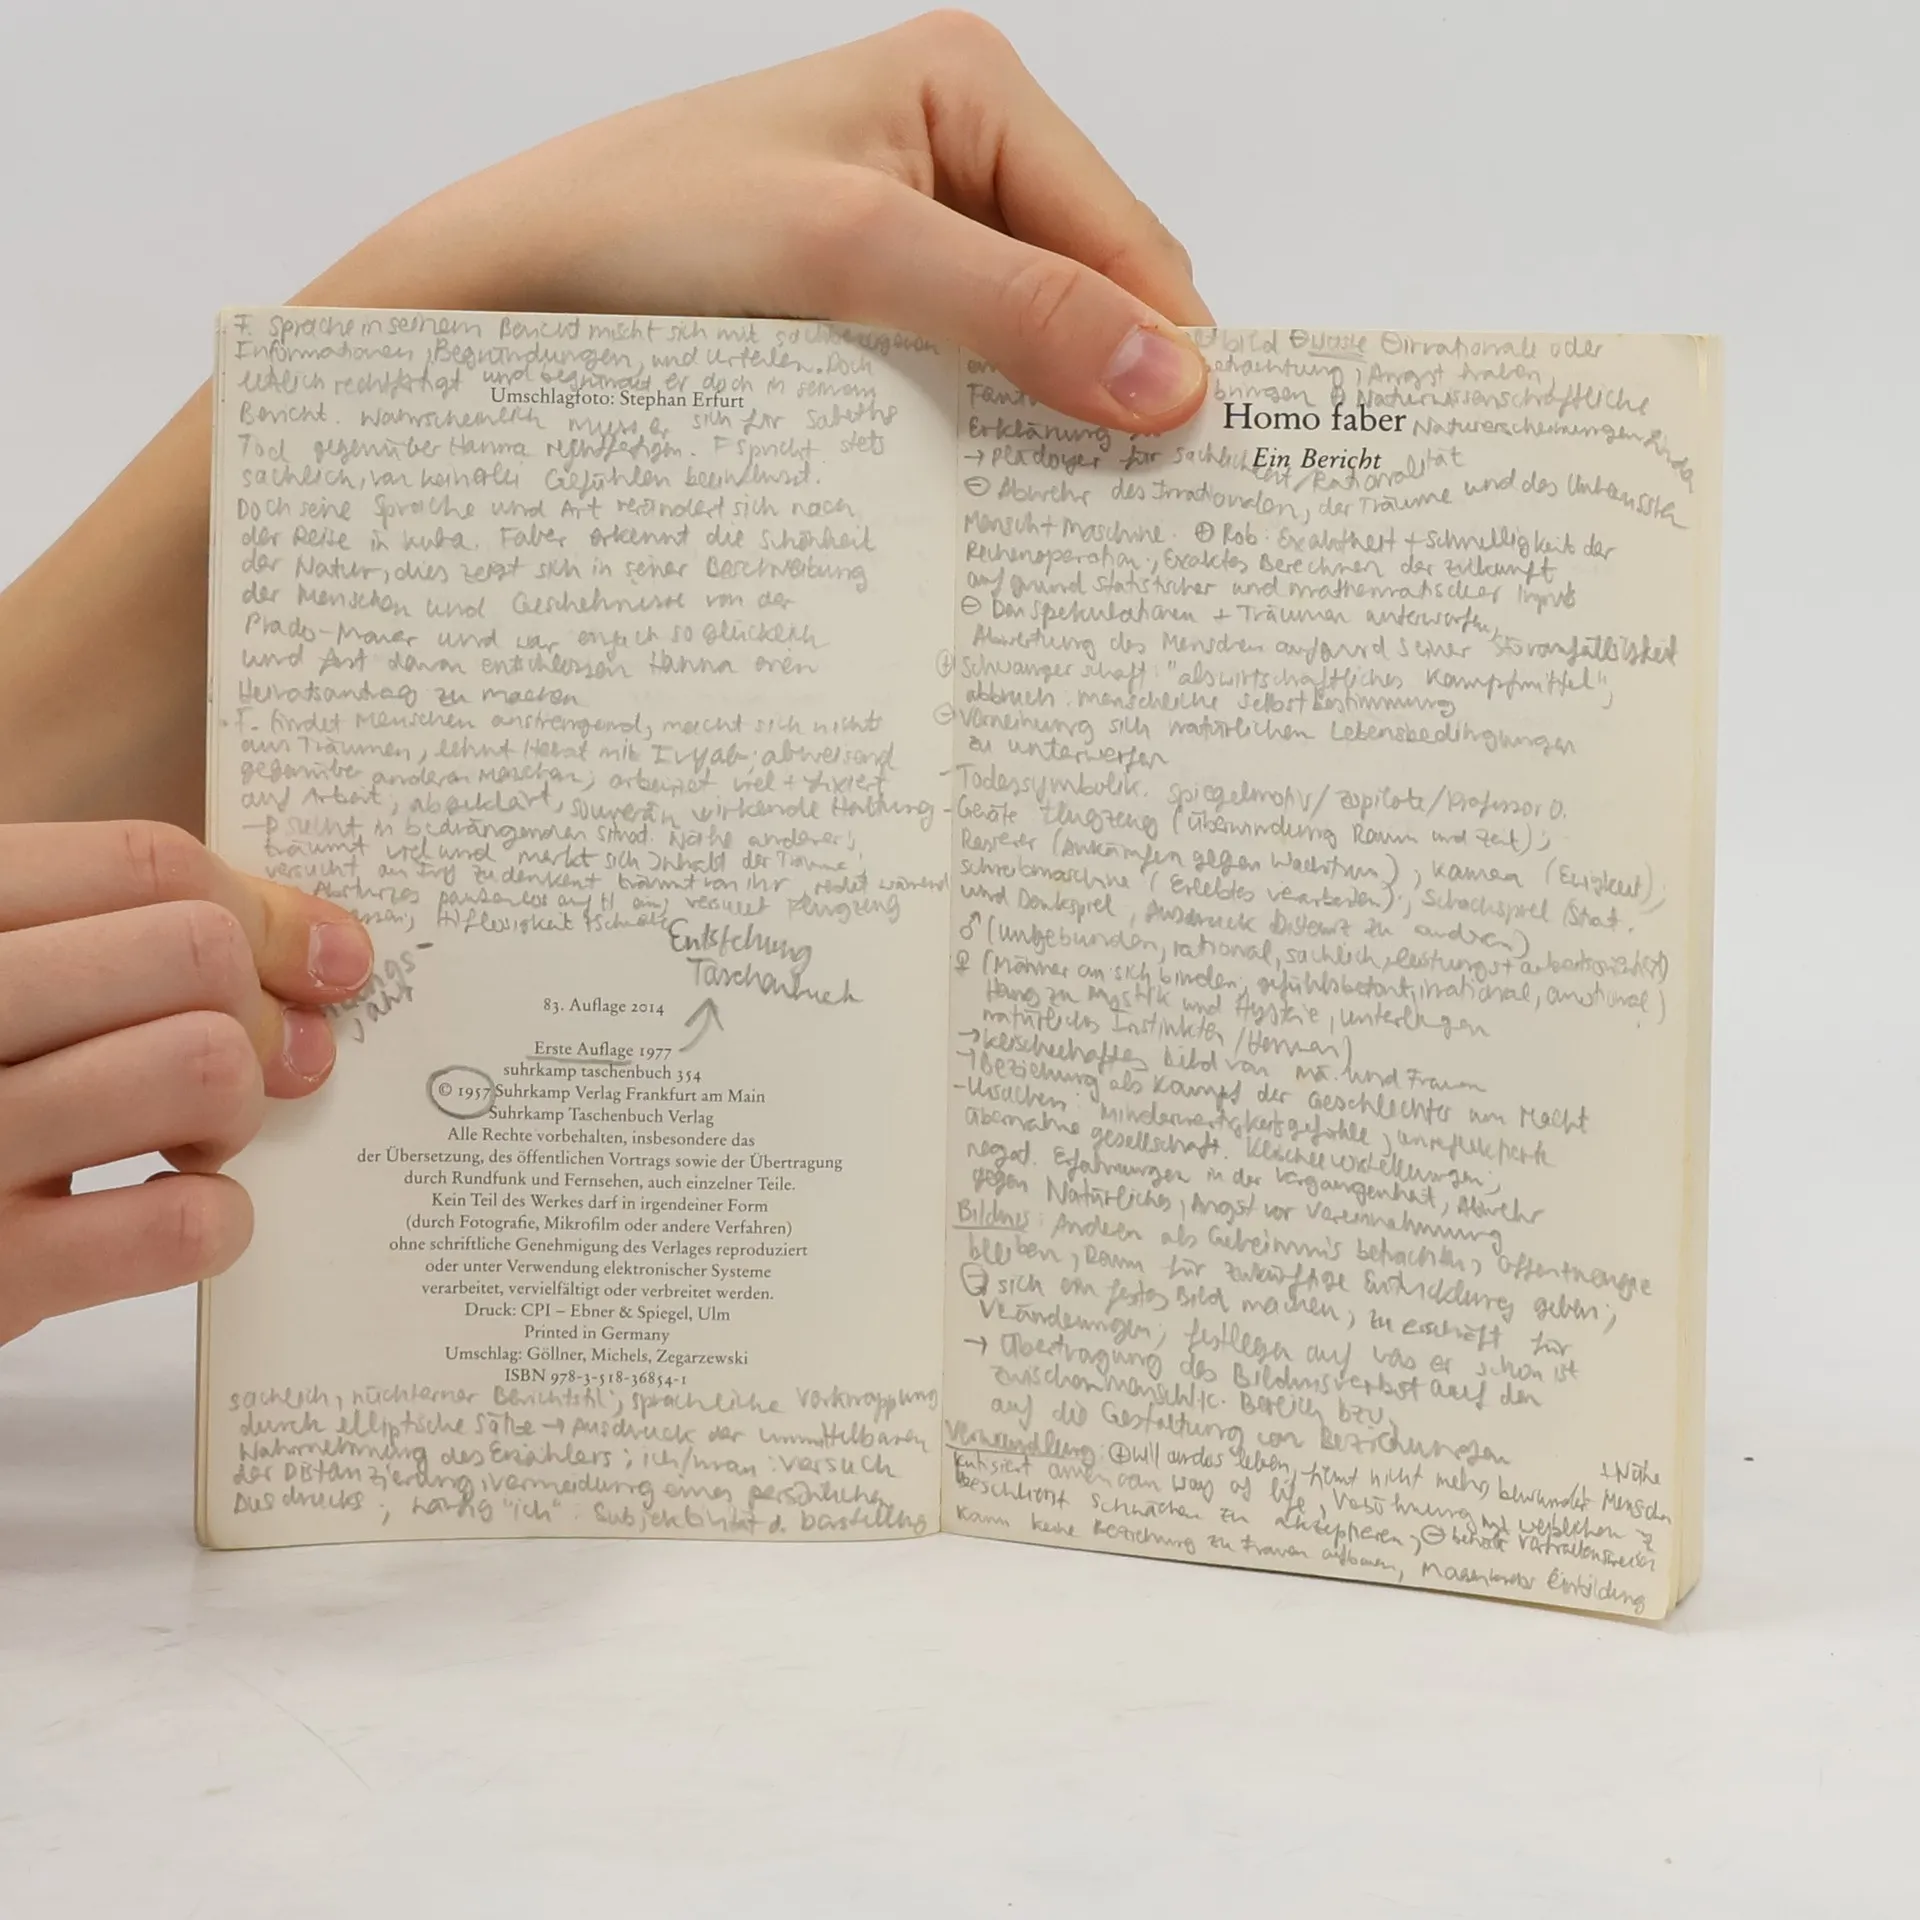 F. Sprache in seinem Bericht mischt sich mit
Informationen, Begründungen, und Urteilen. Doch
letzlich rechtfertigt und begründet er doch in seinem
Umschlagfoto: Stephan Erfurt
Bericht. Wahrscheinlich muss er sich für Sabeths
Tod gegenüber Hanna rechtfertigen. F spricht stets
sachlich, von keinerlei Gefühlen beeinflusst.
Doch seine Sprache und Art verändert sich nach
der Reise in Kuba. Faber erkennt die Schönheit
der Natur, dies zeigt sich in seiner Beschreibung
der Menschen und Geschehnisse von der
Prado-Mauer und war einfach so glücklich
und fest davon entschlossen Hanna einen
Heiratsantrag zu machen
F. findet Menschen anstrengend, macht sich nichts
aus Träumen, lehnt Heirat mit Ivy ab; abweisend
gegenüber anderen Menschen; arbeitet viel + fixiert
auf Arbeit; abgeklärt, souverän wirkende Haltung
sucht in bedrängenden Situat. Nähe anderer;
träumt viel und merkt sich Inhalt der Träume;
versucht an Ivy zu denken träumt von ihr, redet während
Absturzes pausenlos auf H ein; Flugzeug
Entstehung
Taschenbuch
jahr
83. Auflage 2014
Erste Auflage 1977
suhrkamp taschenbuch 354
© 1957 Suhrkamp Verlag Frankfurt am Main
Suhrkamp Taschenbuch Verlag
Alle Rechte vorbehalten, insbesondere das
der Übersetzung, des öffentlichen Vortrags sowie der Übertragung
durch Rundfunk und Fernsehen, auch einzelner Teile.
Kein Teil des Werkes darf in irgendeiner Form
(durch Fotografie, Mikrofilm oder andere Verfahren)
ohne schriftliche Genehmigung des Verlages reproduziert
oder unter Verwendung elektronischer Systeme
verarbeitet, vervielfältigt oder verbreitet werden.
Druck: CPI – Ebner & Spiegel, Ulm
Printed in Germany
Umschlag: Göllner, Michels, Zegarzewski
ISBN 978-3-518-36854-1
sachlich, nüchterner Berichtstil; sprachliche Verknappung
durch elliptische Sätze → Ausdruck der unmittelbaren
Wahrnehmung des Erzählers; ich/man: Versuch
der Distanzierung, Vermeidung eines persönlichen
Ausdrucks; häufig "ich": Subjektivität d. Darstellung
bild Wüste ⊖ irrationale oder
Betrachtung, Angst haben,
bringen ⊕ Naturwissenschaftliche
Homo faber
Erklärung Naturerscheinungen
Ein Bericht
→ Plädoyer für Sachlichkeit/Rationalität
⊖ Abwehr des Irrationalen, der Träume und des Unbewussten
Mensch + Maschine. ⊕ Rob: Exaktheit + Schnelligkeit der
Rechenoperation; Exaktes Berechnen der Zukunft
auf grund statistischer und mathematischer Inputs
⊖ Den Spekulationen + Träumen unterworfen,
Abwertung des Menschen aufgrund seiner Störanfälligkeit
⊕ Schwangerschaft: "als wirtschaftliches Kampfmittel",
abbruch: menschliche Selbstbestimmung
⊖ Verneinung sich natürlichen Lebensbedingungen
zu unterwerfen
- Todessymbolik. Spiegelmotiv/Zopilote/Professor O.
- Geräte Flugzeug (Überwindung Raum und Zeit);
Rasierer (Ankämpfen gegen Wachstum), Kamera (Ewigkeit);
Schreibmaschine (Erlebtes verarbeiten); Schachspiel (Strat.
und Denkspiel, Ausdruck Distanz zu anderen)
♂ (ungebunden, rational, sachlich, leistungs + arbeitsorientiert)
♀ (Männer an sich binden, gefühlsbetont, irrational, emotional)
Hang zu Mystik und Hysterie, unterliegen
natürlichen Instinkten/Hormon)
→ klischeehaftes Bild von Mä. und Frauen
→ Beziehung als Kampf der Geschlechter um Macht
- Ursachen: Minderwertigkeitsgefühle, unreflektierte
Übernahme gesellschaft. Klischeevorstellungen;
negat. Erfahrungen in der Vergangenheit, Abwehr
gegen Natürliches, Angst vor Vereinnahmung
Bildnis: Anderen als Geheimnis betrachten, offen
bleiben, Raum für zukünftige Entwicklung geben;
⊖ sich ein festes Bild machen, zu erschöpft für
Veränderungen; festlegen auf was er schon ist
→ Übertragung des Bildnisverbot auf den
zwischenmenschlic. Bereich bzw.
auf die Gestaltung von Beziehungen
Verwandlung: ⊕ will anders leben, filmt nicht mehr, bewundert Menschen + Nähe
kritisiert american way of life, Versöhnung mit weiblichen
beschliesst Schwächen zu akzeptieren, ⊖ behält Verhaltensweisen
kann keine Beziehung zu Frauen aufbauen, Magenkrebs Einbildung